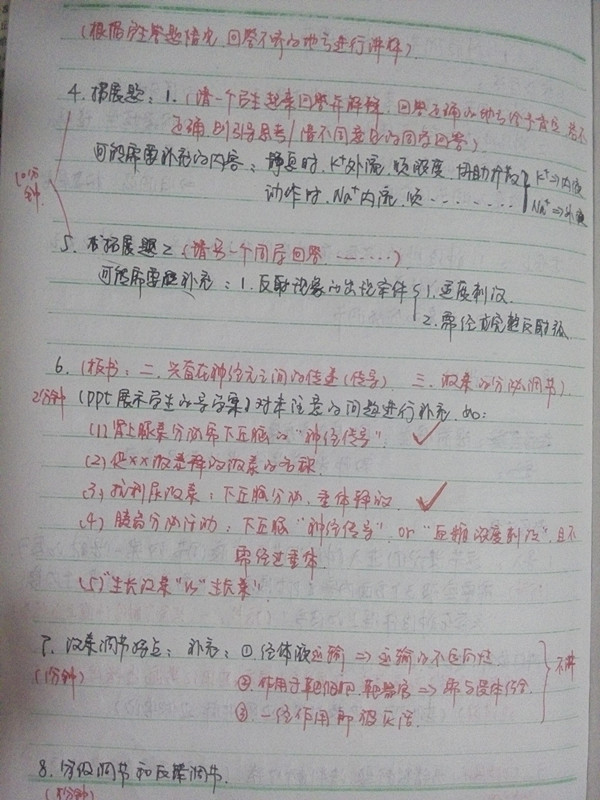 (根据学生答题情况,回答不好的地方进行讲解)
4. 拓展题:1.(请一个学生起来回答并解释,回答正确的地方给予肯定,若不
正确则引导思考/请不同意见的同学回答)
10分钟
可能需要补充的内容:静息时,K⁺外流,顺浓度,协助扩散 { K⁺⇒内液
动作时,Na⁺内流,顺 ........ Na⁺⇒外液
5. 拓展题2(请另一个同学回答 ........)
可能需要补充:1.反射现象的出现条件 { 1.适度刺激
2.需经过完整反射弧
6.(板书:二.兴奋在神经元之间的传递(传导) 三.激素的分泌调节)
2分钟 (ppt展示学生的导学案)对本注意的问题进行补充,如:
(1)肾上腺素分泌需下丘脑的“神经传导”.
(2)促××激素释放激素的名称.
(3)抗利尿激素:下丘脑分泌,垂体释放.
(4)胰岛分泌活动:下丘脑“神经传导”,or“血糖浓度刺激”,且不
需经过垂体.
(5)“生长激素”vs“生长素”
7. 激素调节特点:补充:①经体液运输 ⇒ 运输的不定向性
(1分钟) ②作用于靶细胞、靶器官 ⇒ 需与受体结合 } 不讲
③一经作用即被灭活.
8. 分级调节和反馈调节.
分钟)